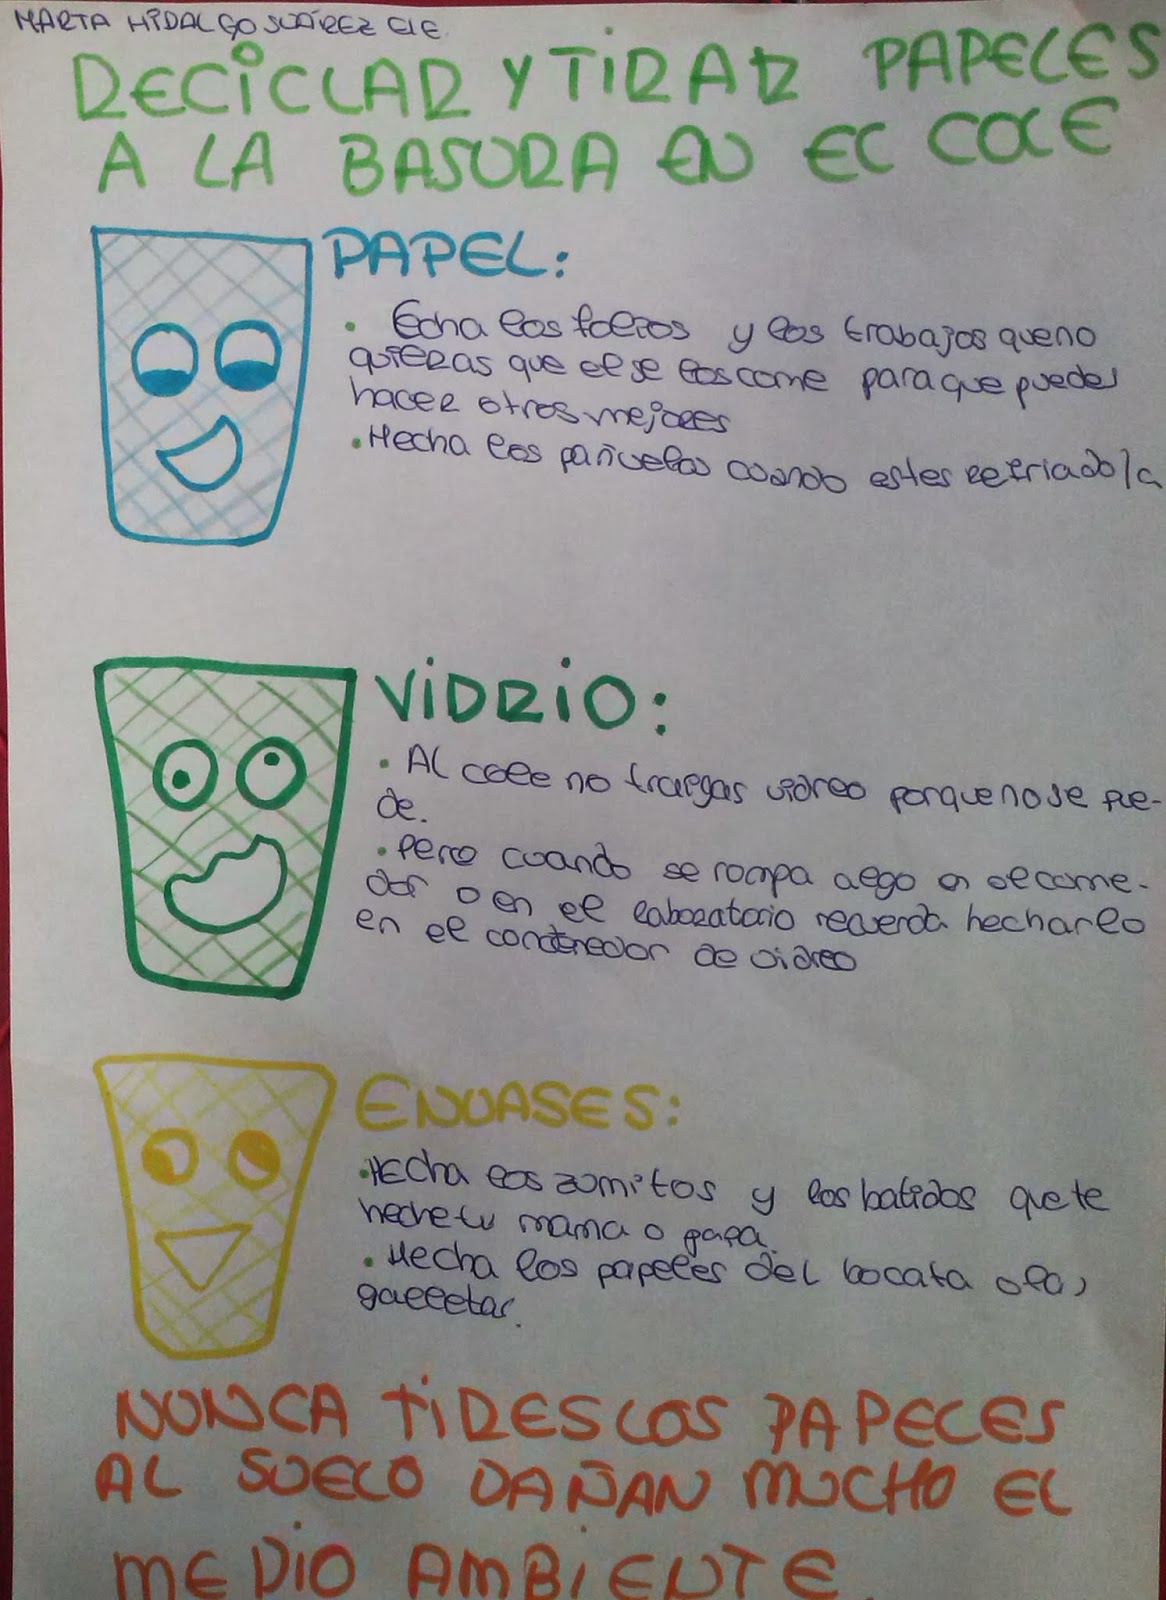 MARTA HIDALGO SUÁREZ
RECICLAR Y TIRAR PAPELES
A LA BASURA EN EL COLE
PAPEL:
• Echa los folios y los trabajos que no
quieras que el se los come para que puedes
hacer otros mejores
• Hecha los pañuelos cuando estes refriado/a
VIDRIO:
• Al cole no traigas vidreo porque no se pue-
de.
• Pero cuando se rompa algo en el come-
dor o en el laboratorio recuerda hecharlo
en el contenedor de vidreo
ENVASES:
• Hecha los zumitos y los batidos que te
heche tu mama o papa.
• Hecha los papeles del bocata o las
galletas.
NUNCA TIRES LOS PAPELES
AL SUELO DAÑAN MUCHO EL
MEDIO AMBIENTE.